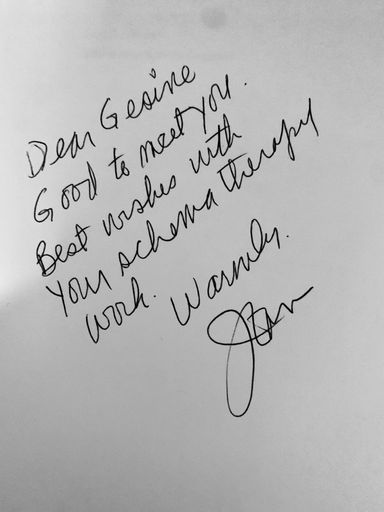 Dear Gesine
Good to meet you.
Best wishes with
your schema therapy
work. Warmly.